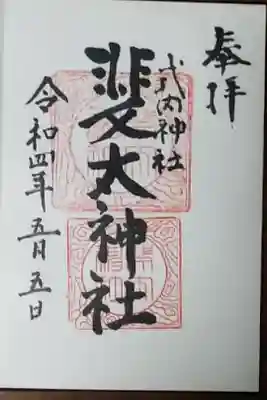 奉拝
式内神社
斐太神社
令和四年五月五日